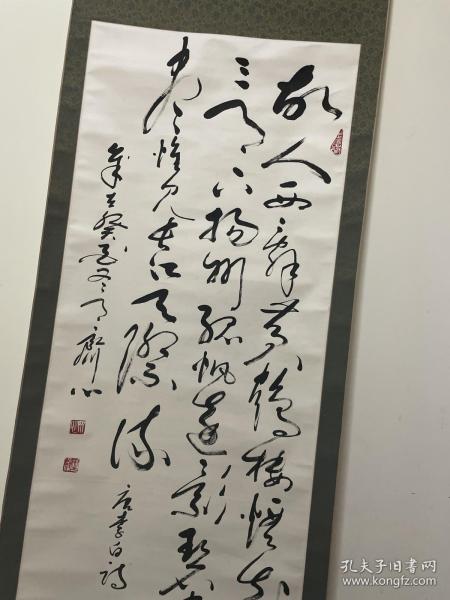 故人西辞黄鹤楼烟花
三月下扬州孤帆远影碧空
尽惟见长江天际流
唐李白诗
岁在癸
冬月齐心
孔夫子旧书网
www.kongfz.com